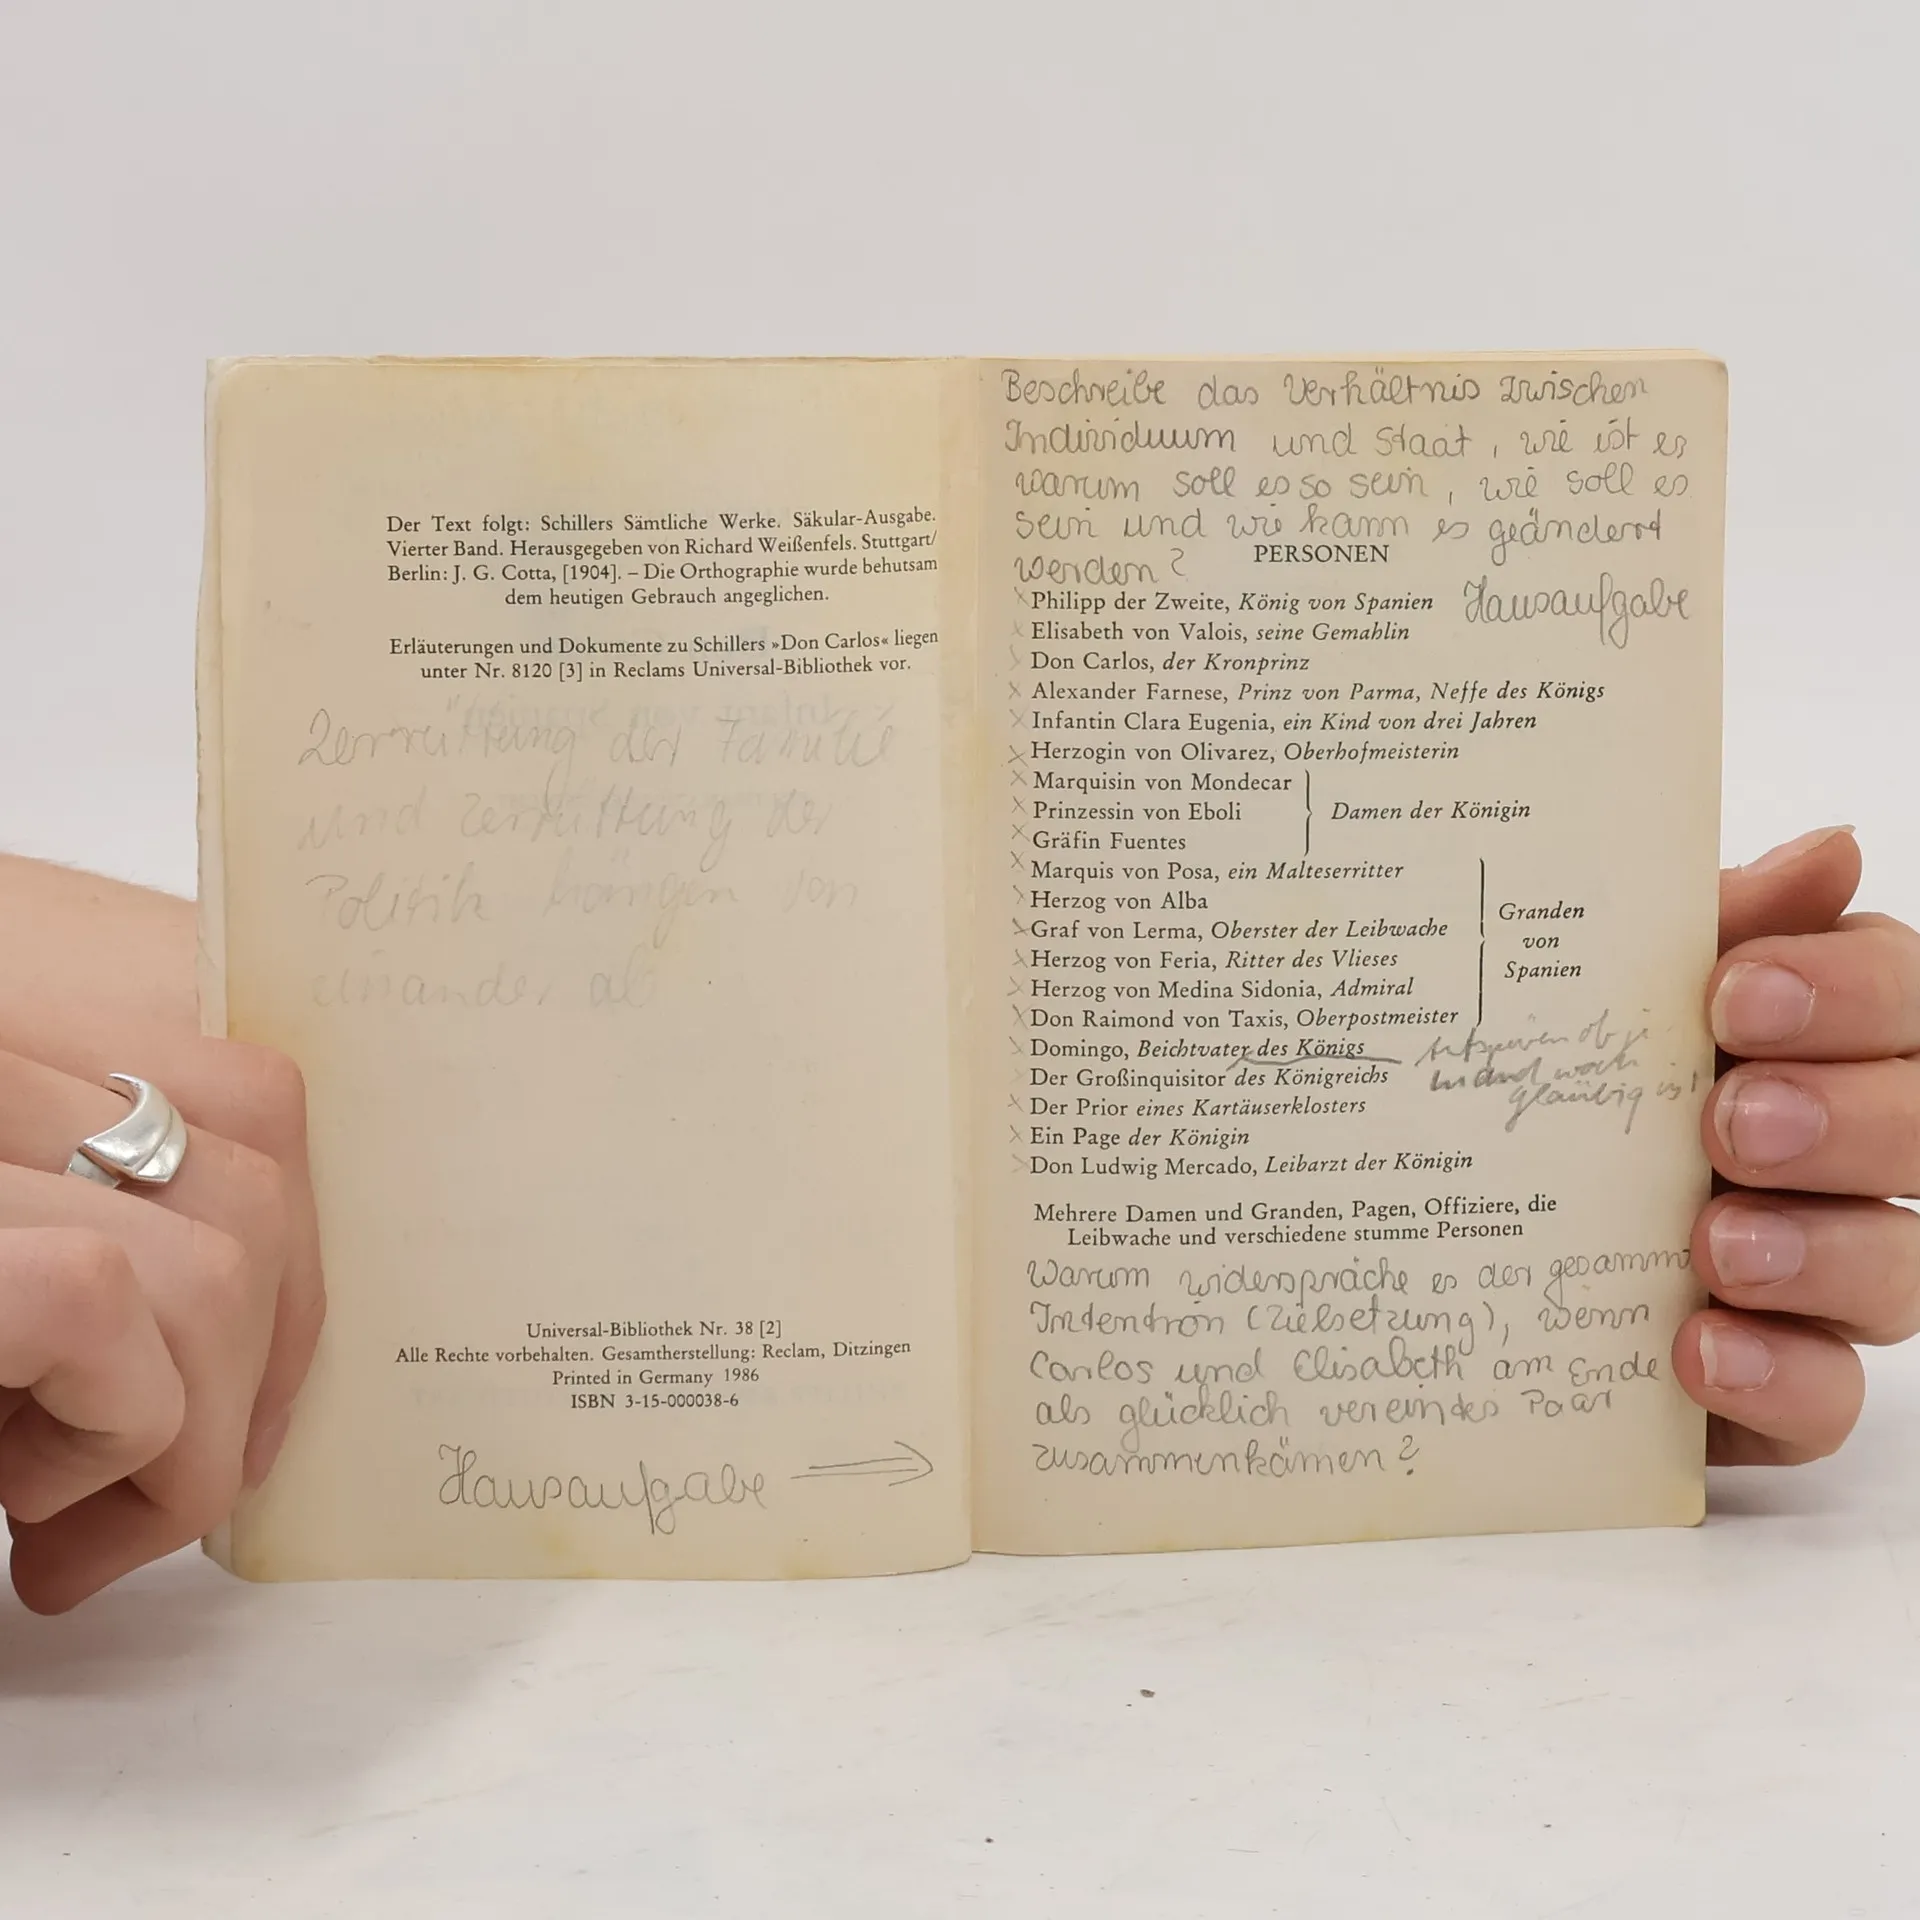 Der Text folgt: Schillers Sämtliche Werke. Säkular-Ausgabe.
Vierter Band. Herausgegeben von Richard Weißenfels. Stuttgart/
Berlin: J. G. Cotta, [1904]. – Die Orthographie wurde behutsam
dem heutigen Gebrauch angeglichen.
Erläuterungen und Dokumente zu Schillers »Don Carlos« liegen
unter Nr. 8120 [3] in Reclams Universal-Bibliothek vor.
Zerrüttung der Familie
und Zerrüttung der
Politik hängen von
einander ab
Universal-Bibliothek Nr. 38 [2]
Alle Rechte vorbehalten. Gesamtherstellung: Reclam, Ditzingen
Printed in Germany 1986
ISBN 3-15-000038-6
Hausaufgabe →
Beschreibe das Verhältnis zwischen
Individuum und Staat, wie ist es
warum soll es so sein, wie soll es
sein und wie kann es geändert
werden?
PERSONEN
Hausaufgabe
Philipp der Zweite, König von Spanien
Elisabeth von Valois, seine Gemahlin
Don Carlos, der Kronprinz
Alexander Farnese, Prinz von Parma, Neffe des Königs
Infantin Clara Eugenia, ein Kind von drei Jahren
Herzogin von Olivarez, Oberhofmeisterin
Marquisin von Mondecar
Prinzessin von Eboli
Gräfin Fuentes
Damen der Königin
Marquis von Posa, ein Malteserritter
Herzog von Alba
Graf von Lerma, Oberster der Leibwache
Herzog von Feria, Ritter des Vlieses
Herzog von Medina Sidonia, Admiral
Don Raimond von Taxis, Oberpostmeister
Granden
von
Spanien
Domingo, Beichtvater des Königs
Der Großinquisitor des Königreichs
Der Prior eines Kartäuserklosters
Ein Page der Königin
Don Ludwig Mercado, Leibarzt der Königin
ob je
mand noch
gläubig ist
Mehrere Damen und Granden, Pagen, Offiziere, die
Leibwache und verschiedene stumme Personen
Warum widerspräche es der gesammt
Intention (Zielsetzung), wenn
Carlos und Elisabeth am Ende
als glücklich vereintes Paar
zusammenkämen?